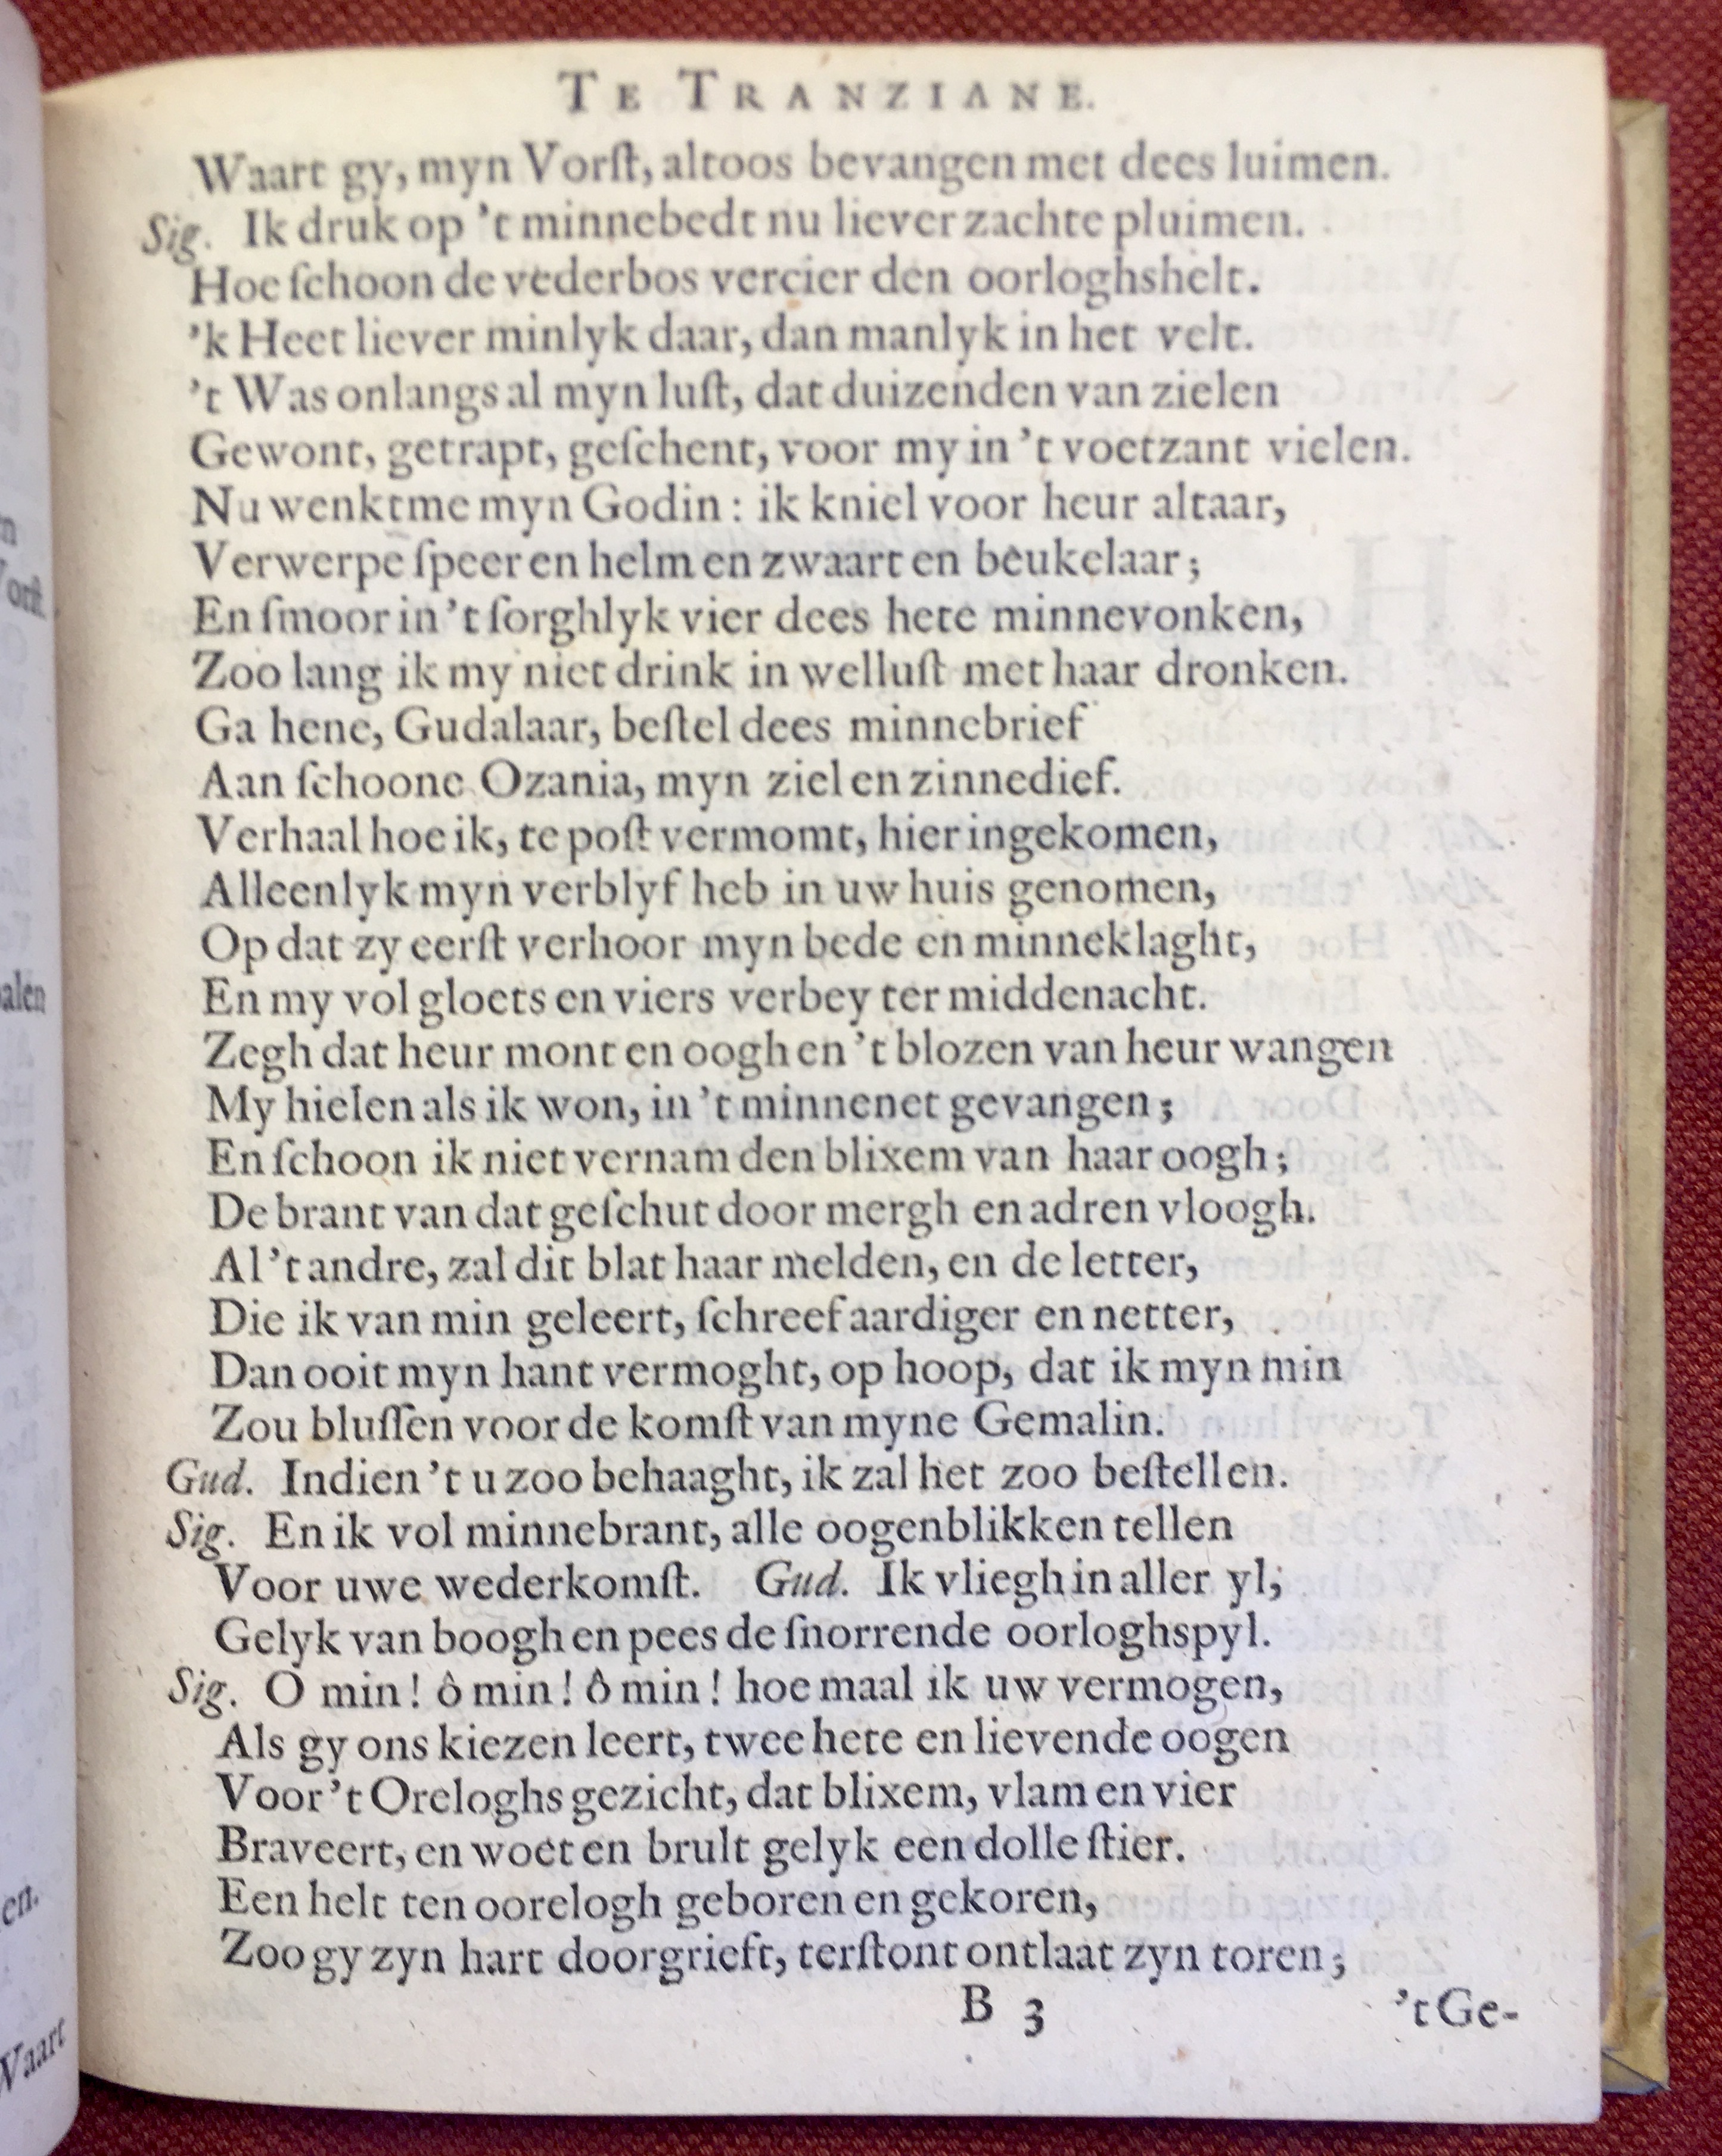 TE TRANZIANE.
Waart gy, myn Vorſt, altoos bevangen met dees luimen.
Sig. Ik druk op 't minnebedt nu liever zachte pluimen.
Hoe ſchoon de vederbos vercier den oorloghshelt.
'k Heet liever minlyk daar, dan manlyk in het velt.
't Was onlangs al myn luſt, dat duizenden van zielen
Gewont, getrapt, geſchent, voor my in 't voetzant vielen.
Nu wenktme myn Godin: ik kniel voor heur altaar,
Verwerpe ſpeer en helm en zwaart en beukelaar;
En ſmoor in 't ſorghlyk vier dees hete minnevonken,
Zoo lang ik my niet drink in welluſt met haar dronken.
Ga hene, Gudalaar, beſtel dees minnebrief
Aan ſchoone Ozania, myn ziel en zinnedief.
Verhaal hoe ik, te poſt vermomt, hier ingekomen,
Alleenlyk myn verblyf heb in uw huis genomen,
Op dat zy eerſt verhoor myn bede en minneklaght,
En my vol gloets en viers verbey ter middenacht.
Zegh dat heur mont en oogh en 't blozen van heur wangen
My hielen als ik won, in 't minnenet gevangen;
En ſchoon ik niet vernam den blixem van haar oogh;
De brant van dat geſchut door mergh en adren vloogh.
Al 't andre, zal dit blat haar melden, en de letter,
Die ik van min geleert, ſchreef aardiger en netter,
Dan ooit myn hant vermoght, op hoop, dat ik myn min
Zou bluſſen voor de komſt van myne Gemalin.
Gud. Indien 't u zoo behaaght, ik zal het zoo beſtellen.
Sig. En ik vol minnebrant, alle oogenblikken tellen
Voor uwe wederkomſt. Gud. Ik vliegh in aller yl,
Gelyk van boogh en pees de ſnorrende oorloghspyl.
Sig. O min! ô min! ô min! hoe maal ik uw vermogen,
Als gy ons kiezen leert, twee hete en lievende oogen
Voor 't Oreloghs gezicht, dat blixem, vlam en vier
Braveert, en woet en brult gelyk een dolle ſtier.
Een helt ten oorelogh geboren en gekoren,
Zoo gy zyn hart doorgrieft, terſtont ontlaat zyn toren;
B 3 't Ge-
n
Vorſt
alen
en.
Waart